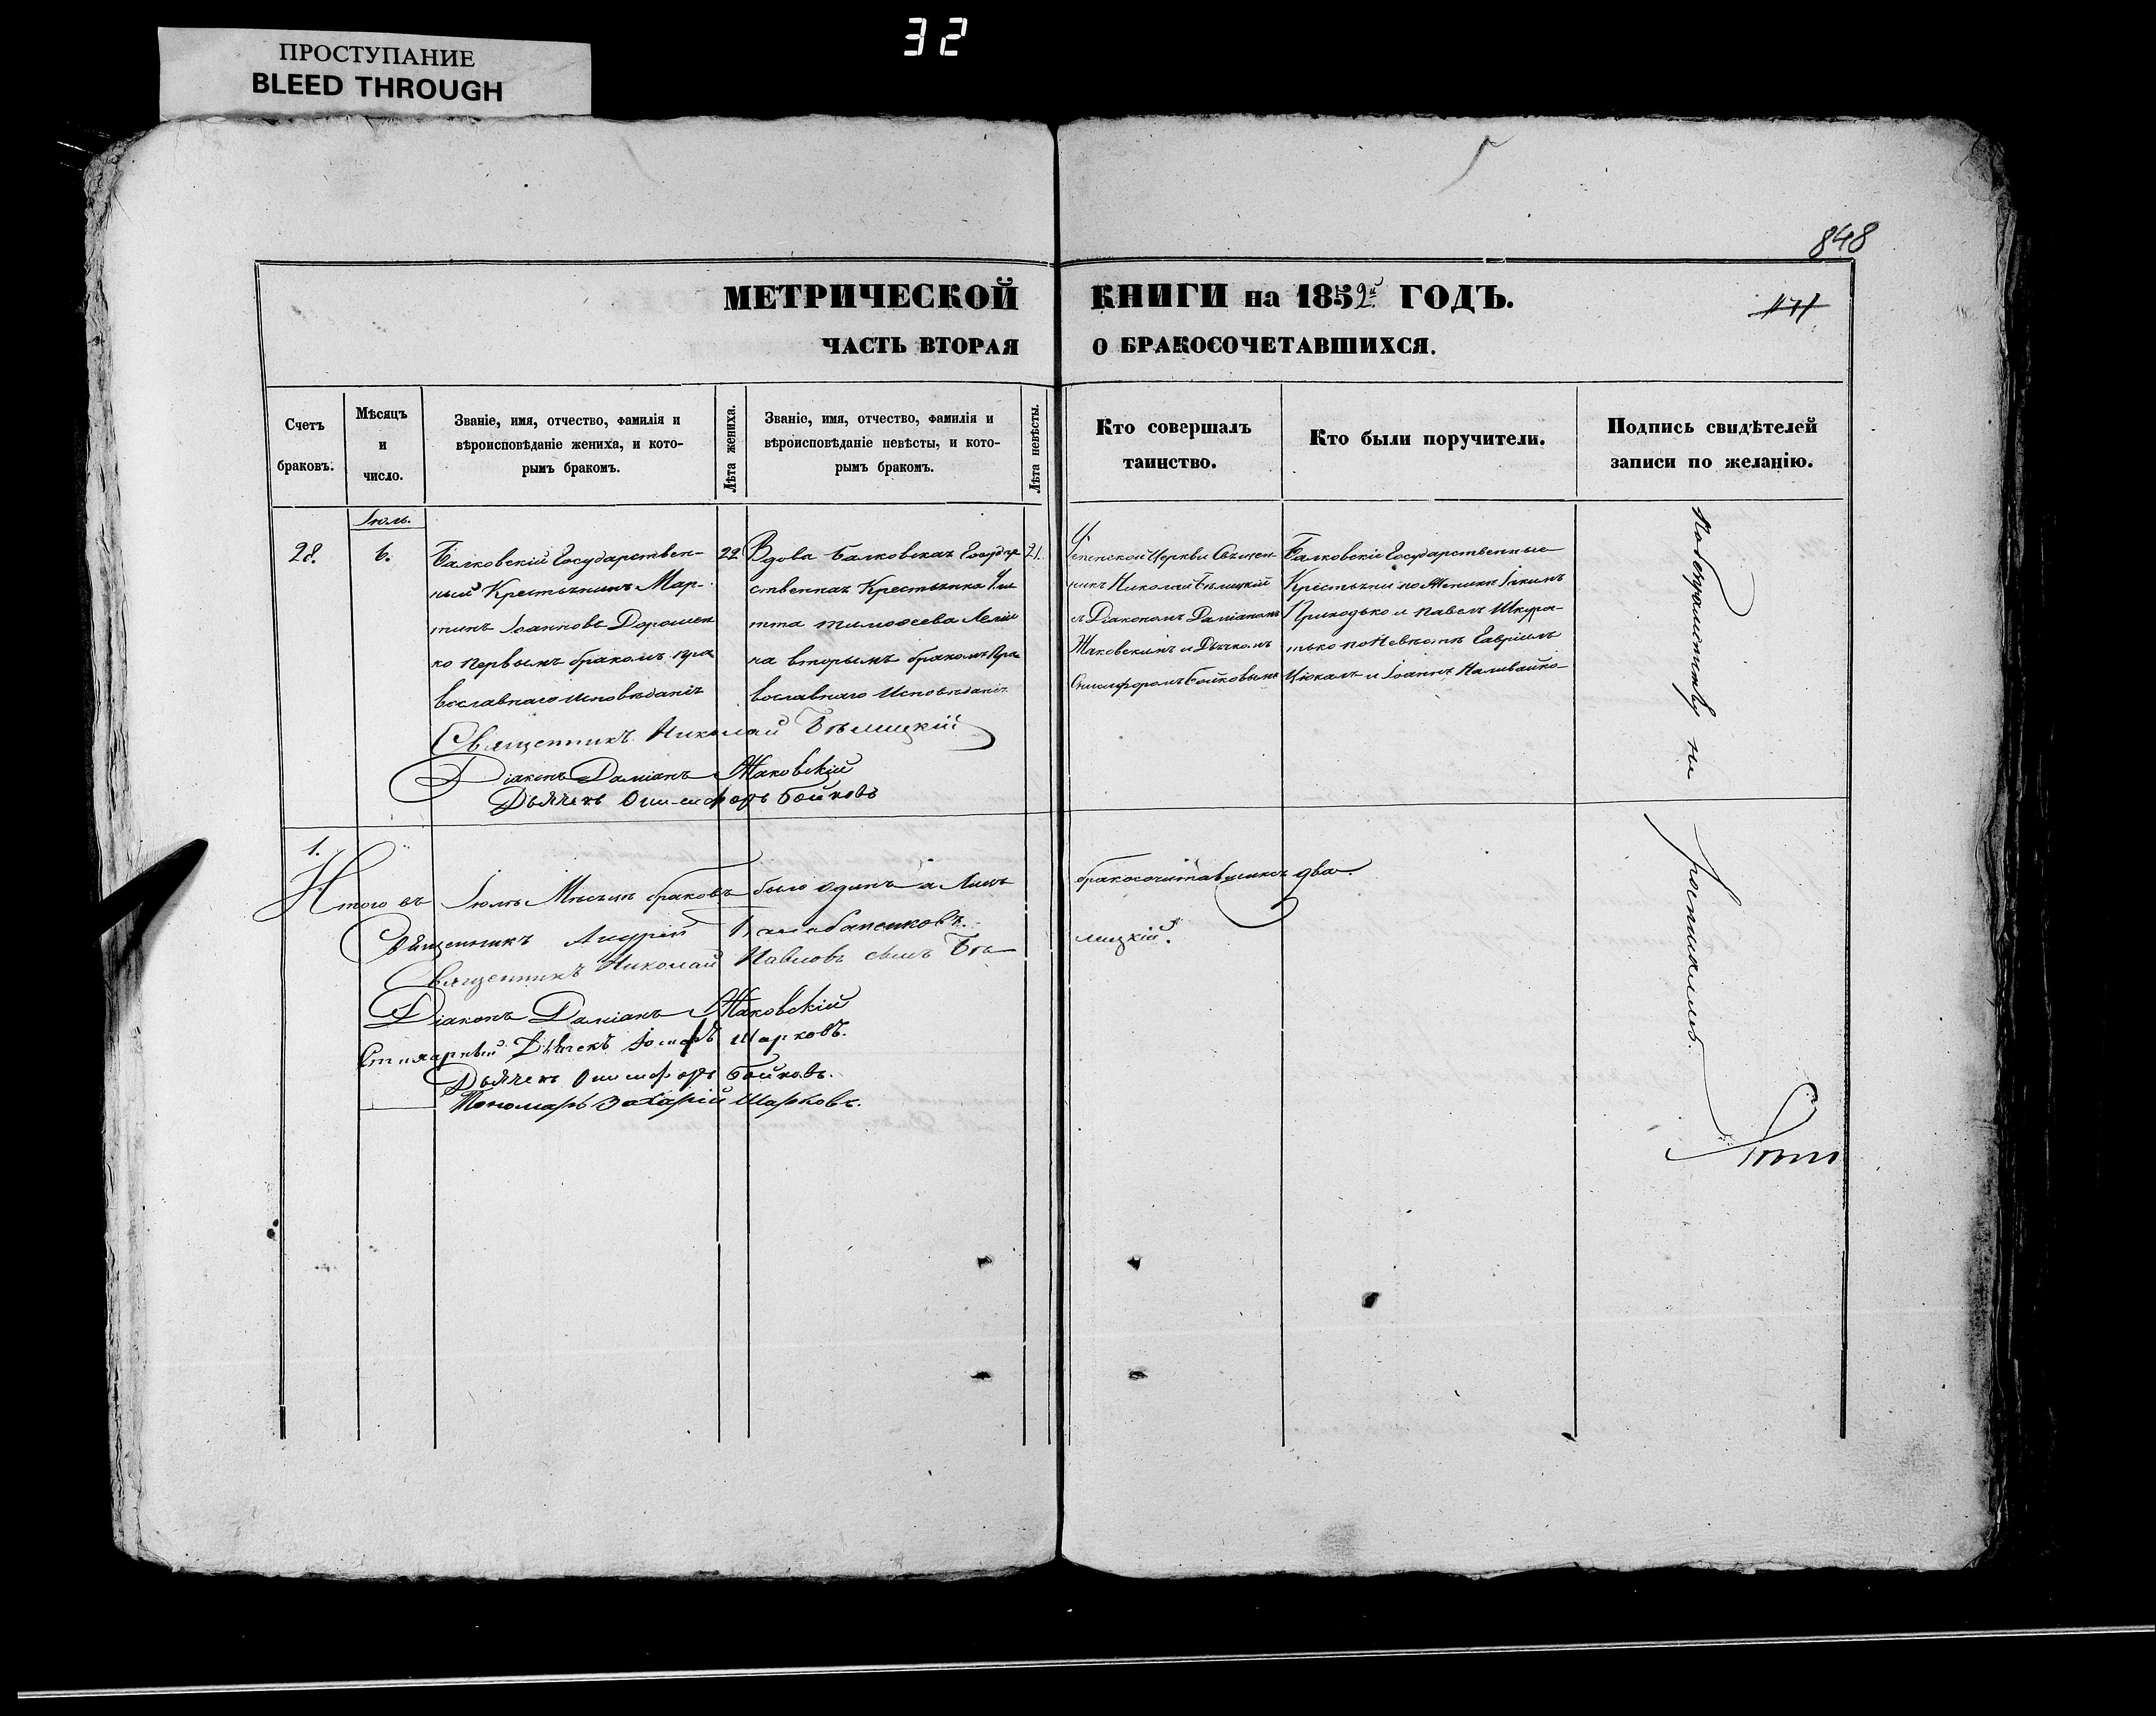 ПРОСТУПАНИЕ
BLEED THROUGH
32
848
МЕТРИЧЕСКОЙ КНИГИ на 1852й ГОДЪ.
ЧАСТЬ ВТОРАЯ О БРАКОСОЧЕТАВШИХСЯ.
Счетъ
браковъ.
Мѣсяцъ
и
число.
Званіе, имя, отчество, фамилія и
вѣроисповѣданіе жениха, и кото-
рымъ бракомъ.
Лѣта жениха.
Званіе, имя, отчество, фамилія и
вѣроисповѣданіе невѣсты, и кото-
рымъ бракомъ.
Лѣта невѣсты.
Кто совершалъ
таинство.
Кто были поручители.
Подпись свидѣтелей
записи по желанію.
Іюль.
28.
6.
Валковскій Государствен-
ный Крестьянинъ Мар-
тинъ Іоанновъ Дорошен
ко первымъ бракомъ пра
вославнаго исповѣданія
22
Вдова Валковская Государ
ственная Крестьянка
Тимоѳеева
на вторымъ бракомъ Пра
вославнаго Исповѣданія
21.
Успенской Церкви Священ-
никъ Николай Бѣлицкій
съ Діакономъ Даміаномъ
Жаковскимъ и Дьячкомъ
Онисифоромъ Бойковымъ
Валковскіе Государственные
Крестьяне по Женихѣ Іакимъ
Приходько и Павелъ Шкура-
тько по Невѣстѣ Гавріилъ
Цюкалъ и Іоаннъ Наливайко
По безграмотству не
росписались.
Священникъ Николай Бѣлицкій
Діаконъ Даміанъ Жаковскій
Дьячекъ Онисифоръ Бойковъ
1.
Итого въ Іюлѣ Мѣсяцѣ браковъ было одинъ а лицъ бракосочитавшихся два.
Священникъ Андрей
Священникъ Николай Павловъ сынъ Бѣ лицкій.
Діаконъ Даміанъ Жаковскій
Стихарный Дьячекъ Іосифъ Шарковъ.
Дьячекъ Онисифоръ Бойковъ.
Пономарь Захарій Шарковъ.